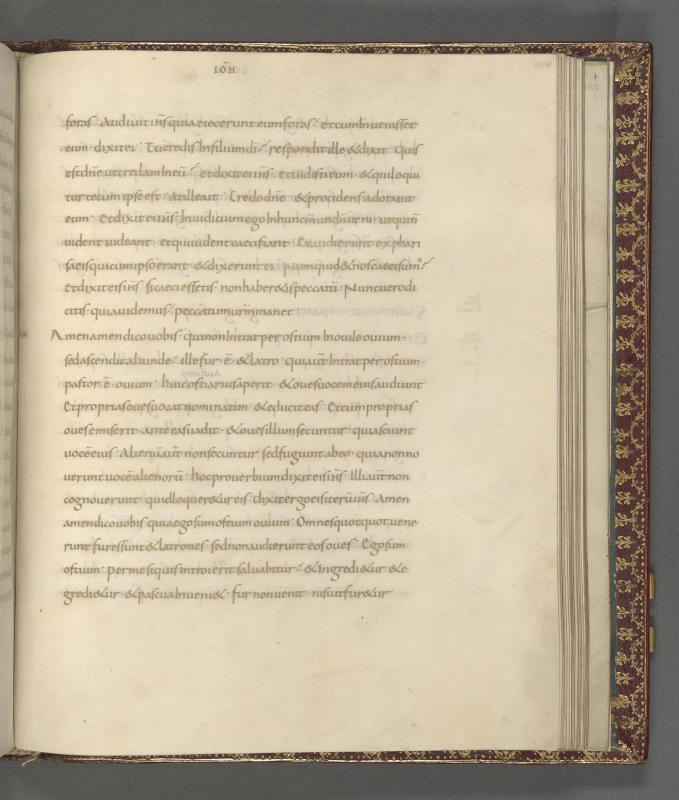 IOH̅
foras· Audiuit ih̅s quia eiecerunt eum foras· et cum Inuenisset
eum· dixit ei· Tu credis In filium di̅· respondit ille & dixit· Quis
est dn̅e ut credam In eu̅· et dixit ei ih̅s· et uidisti eum· & qui loqui
tur tecum ipse est· At ille ait· Credo dn̅e· & procidens adorauit
eum· Et dixit ei ih̅s· In iudicium ego In hunc mundu̅ ueni· ut qui n̅
uident uideant· et qui uident caeci fiant· Et audierunt ex phari
saeis qui cum ipso erant· & dixerunt ei· Numquid & nos caeci sum'·
Et dixit eis ih̅s· si caeci essetis· non haber&is peccatu̅· Nunc uero di
citis· quia uidemus· peccatum urm̅ manet
Amen amen dico uobis· qui non Intrat per ostium In ouile ouium·
sed ascendit aliunde· ille fur e̅· & latro· qui aut̅ Intrat per ostium·
pastor e̅· ouium· huic ostiarius aperit· & oues uocem eius audiunt
Et proprias oues uocat nominatim· & educit eas· Et cum proprias
oues emiserit· ante eas uadit· & oues illum secuntur· quia sciunt
uoce̅ eius· Alienu̅ aut̅ non secuntur· sed fugiunt ab eo· quia non no
uerunt uoce̅ alienoru̅· hoc prouerbium dixit eis ih̅s· Illi aut̅ non
cognouerunt· quid loquer&ur eis· dixit ergo eis iteru̅ ih̅s· Amen
amen dico uobis· quia ego sum ostium ouium· Omnes quotquot uene
runt fures sunt & latrones· sed non audierunt eos oues· Ego sum
ostium· per me si quis introierit saluabitur· & Ingredi&ur & e
gredi&ur· & pascua Inueni&· fur non uenit· nisi ut fur&ur